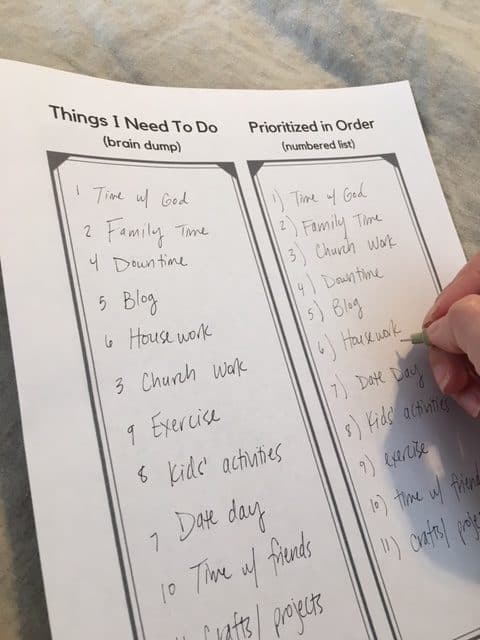 Things I Need To Do
(brain dump)
1 Time w/ God
2 Family Time
4 Downtime
5 Blog
6 Housework
3 Church Work
9 Exercise
8 Kids' activities
7 Date day
10 Time w/ friends
Crafts/ projects
Prioritized in Order
(numbered list)
1) Time w/ God
2) Family Time
3) Church Work
4) Downtime
5) Blog
6) Housework
7) Date Day
8) Kids' activities
9) exercise
10) time w/ friend
11) crafts/ proje